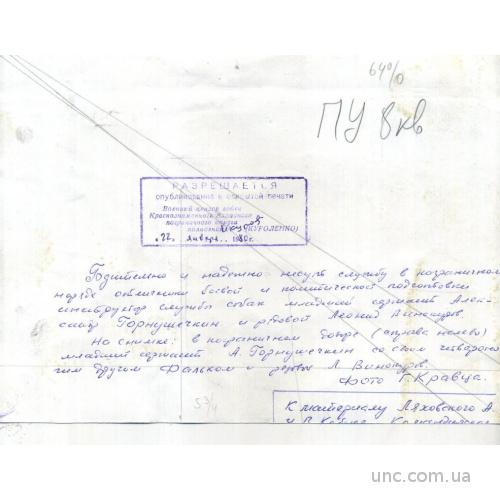 64%
ПУ 8кв
РАЗРЕШАЕТСЯ
опубликование в открытой печати
Военный цензор войск
Краснознаменного Западного
пограничного округа
(КУРОЛЕНКО)
"22" января 1980 г.
Бдительно и надежно несут службу в пограничном
наряде отличники боевой и политической подготовки
инструктор службы собак младший сержант Алек-
сандр Горнушечкин и рядовой Леонид Винокуров.
На снимке: в пограничном дозоре (справа налево)
младший сержант А. Горнушечкин со своим четвероно-
гим другом Фальком и рядовой Л. Винокуров.
Фото Г. Кравца.
53/4
К материалу Ляховского А.
unc.com.ua